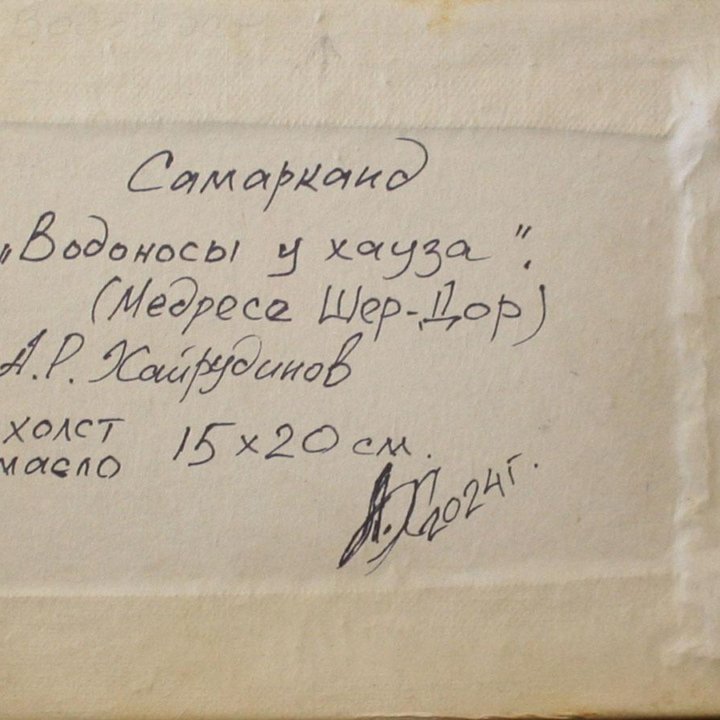 Самарканд
„Водоносы у хауза".
(Медресе Шер-Дор)
А.Р. Хайрудинов
холст
масло
15 х 20 см.
АХ 2024 г.